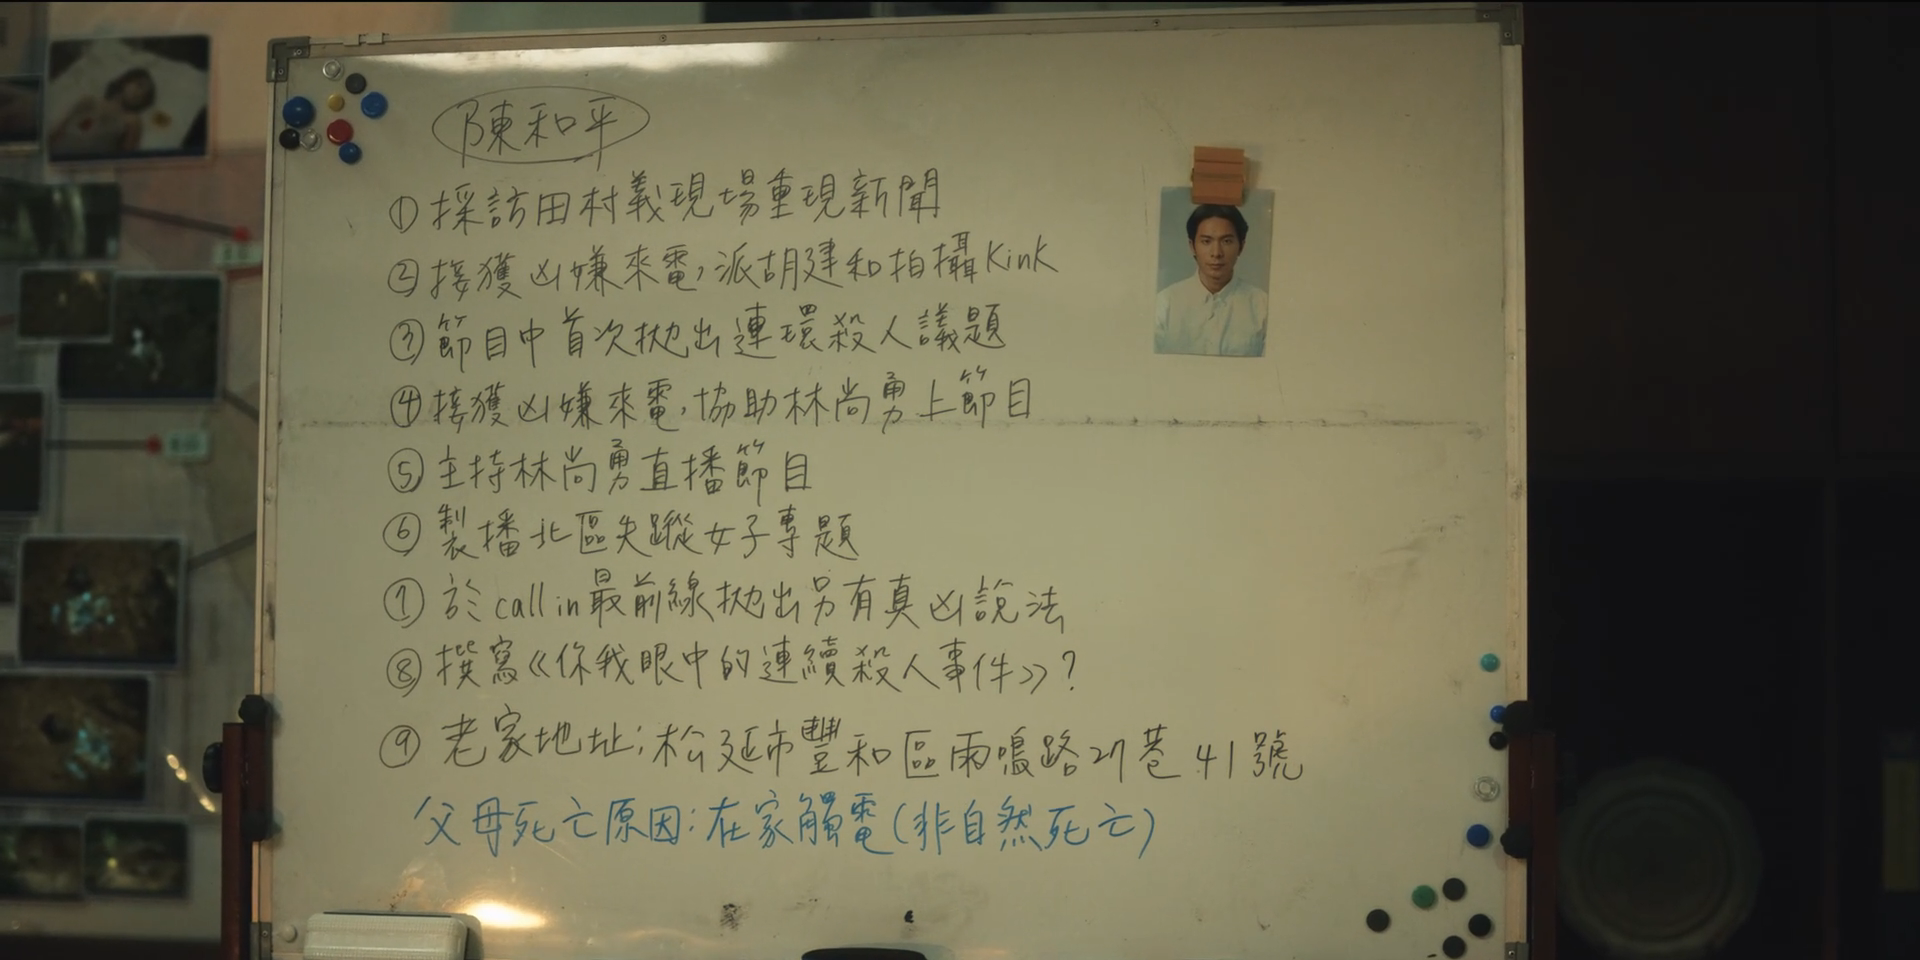 陳和平
①採訪田村義現場重現新聞
②接獲凶嫌來電,派胡建和拍攝Kink
③節目中首次拋出連環殺人議題
④接獲凶嫌來電,協助林尚勇上節目
⑤主持林尚勇直播節目
⑥製播北區失蹤女子專題
⑦於call in最前線拋出另有真凶說法
⑧撰寫《你我眼中的連續殺人事件》?
⑨老家地址:松延市豐和區雨鳴路27巷41號
父母死亡原因:在家觸電(非自然死亡)